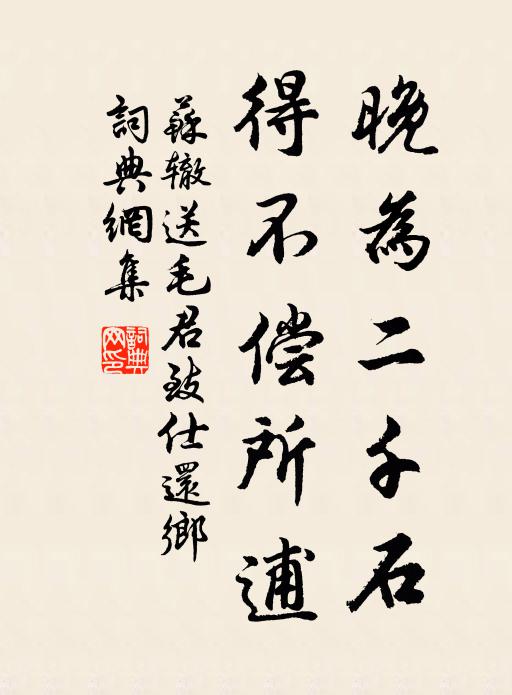 晚為二千石
得不偿所逋
蘇辙送毛君致仕還鄉
詞典網集
詞典
网印